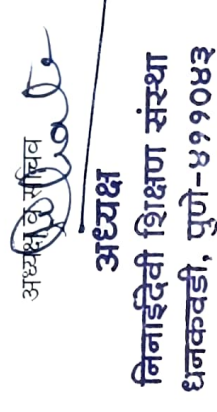 अध्यक्ष व सचिव
अध्यक्ष
निनाईदेवी शिक्षण संस्था
धनकवडी, पुणे-४११०४३